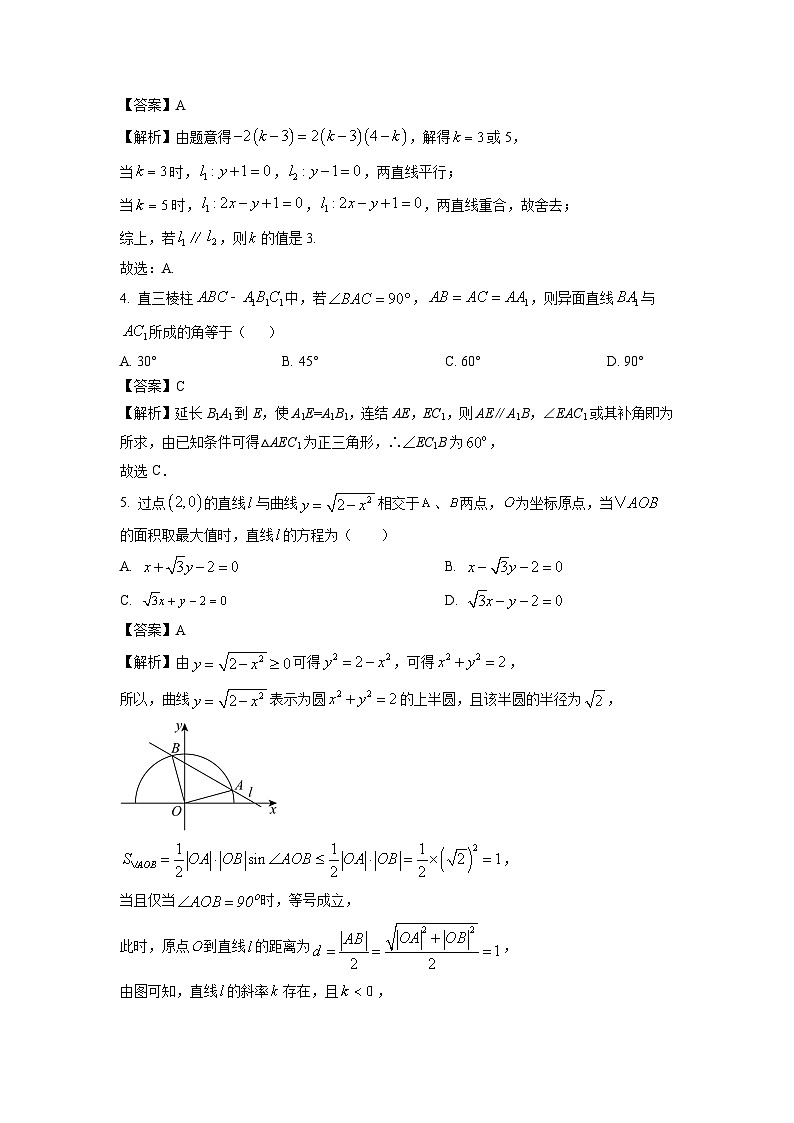 【答案】A
【解析】由题意得−2(k−3)=2(k−3)(4−k),解得k=3或5,
当k=3时,l₁:y+1=0,l₂:y−1=0,两直线平行;
当k=5时,l₁:2x−y+1=0,l₁:2x−y+1=0,两直线重合,故舍去;
综上,若l₁∥l₂,则k的值是3.
故选:A.
4. 直三棱柱ABC-A₁B₁C₁中,若∠BAC=90°,AB=AC=AA₁,则异面直线BA₁与
AC₁所成的角等于( )
A. 30° B. 45° C. 60° D. 90°
【答案】C
【解析】延长B₁A₁到E,使A₁E=A₁B₁,连结AE,EC₁,则AE∥A₁B,∠EAC₁或其补角即为
所求,由已知条件可得△AEC₁为正三角形,∴∠EC₁B为60°,
故选C.
5. 过点(2,0)的直线l与曲线y=√(2−x²)相交于A、B两点,O为坐标原点,当∨AOB
的面积取最大值时,直线l的方程为( )
A. x+√3y−2=0 B. x−√3y−2=0
C. √3x+y−2=0 D. √3x−y−2=0
【答案】A
【解析】由y=√(2−x²)≥0可得y²=2−x²,可得x²+y²=2,
所以,曲线y=√(2−x²)表示为圆x²+y²=2的上半圆,且该半圆的半径为√2,
y
B
A l
O x
S∨AOB=1/2|OA|·|OB|sin∠AOB≤1/2|OA|·|OB|=1/2×(√2)²=1,
当且仅当∠AOB=90°时,等号成立,
此时,原点O到直线l的距离为d=|AB|/2=√(|OA|²+|OB|²)/2=1,
由图可知,直线l的斜率k存在,且k<0,